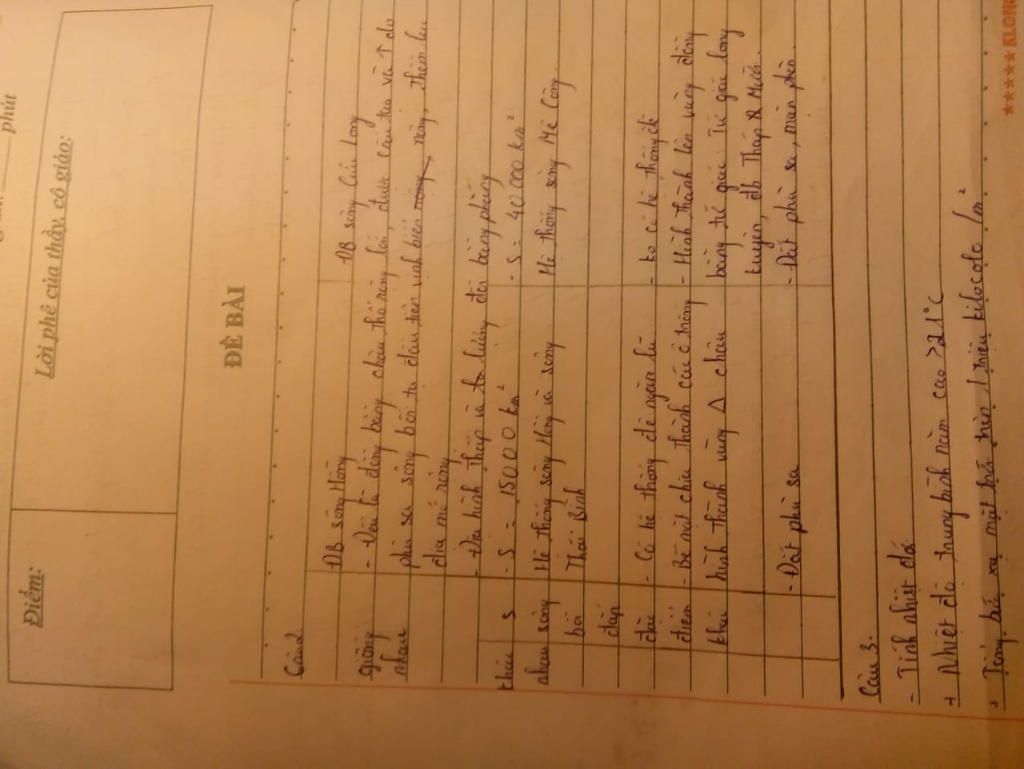 phút
Điểm:
Lời phê của thầy, cô giáo:
ĐỀ BÀI
Câu 2
ĐB sông Hồng
ĐB sông Cửu Long
giống
nhau
- Đều là đồng bằng châu thổ rộng lớn, được cấu tạo và ↑ do
phù sa sông bồi tụ dần trên vịnh biển nông, thềm lục
địa mở rộng
- Địa hình thấp và tương đối bằng phẳng
khác
nhau
S
- S = 15000 km²
- S = 40 000 km²
sông
bồi
đắp
Hệ thống sông Hồng và sông
Thái Bình
Hệ thống sông Mê Công
đặc
điểm
khác
- Có hệ thống đê ngăn lũ
- ko có hệ thống đê
- Bề mặt chia thành các ô trũng
hình thành vùng Δ châu
- Hình thành lên vùng đồng
bằng tứ giác Tứ giác Long
Xuyên, đb Tháp & Mười.
- Đất phù sa
- Đất phù sa, mặn phèn.
Câu 3.
- Tính nhiệt đới
+ Nhiệt độ trung bình năm cao > 21°C
+ Tổng bức xạ mặt trời trên 1 triệu kilocalo /m²
★★★★★ KLONG